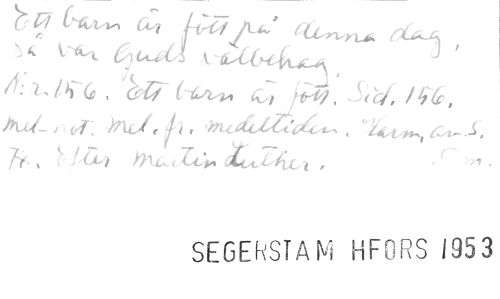 Ett barn är fött på denna dag,
så var Guds välbehag.
N:r. 156. Ett barn är fött. Sid. 156.
mel-not. Mel. fr. medeltiden. Harm. av S.
Efter Martin Luther.
SEGERSTAM HFORS 1953